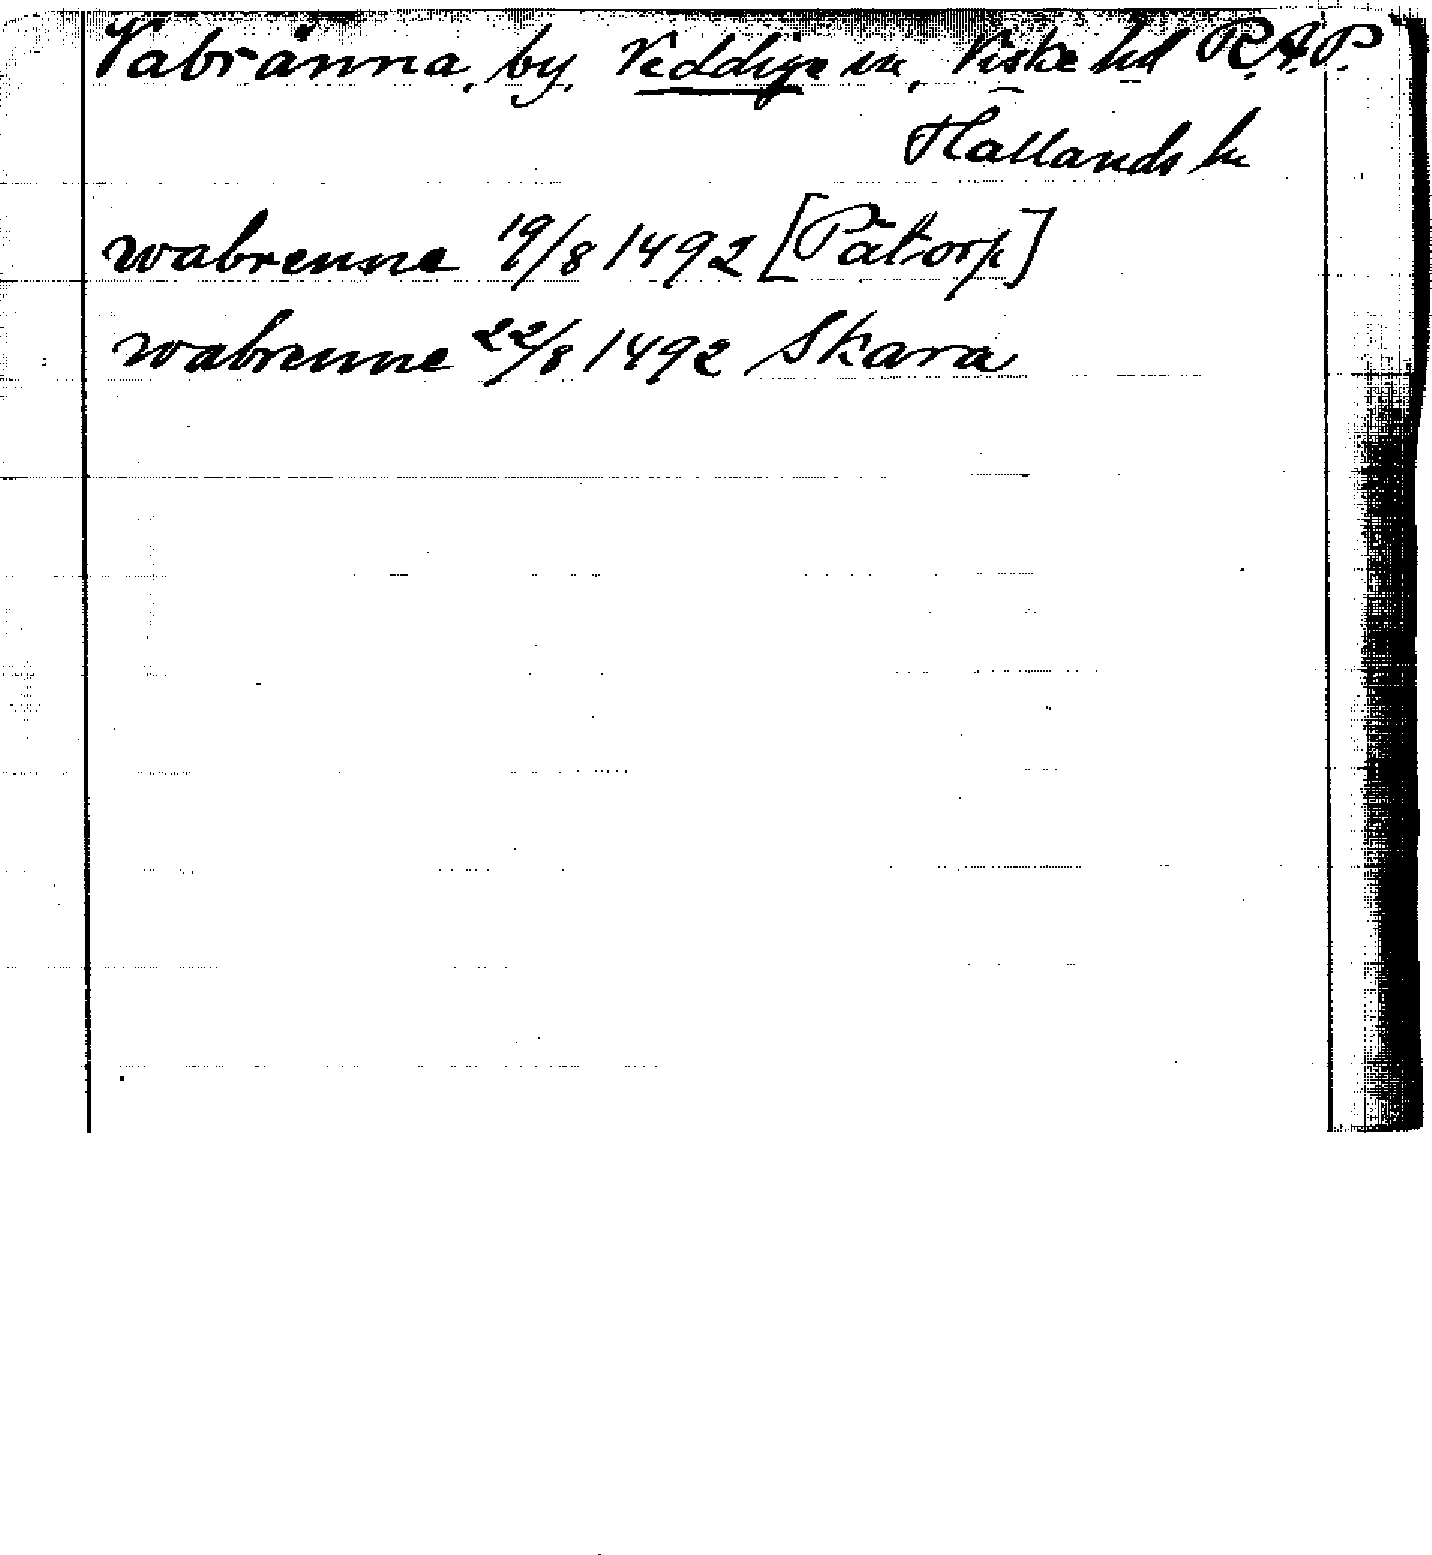 Vabränna, by, Veddige sn, Viske hd R.A.P.
Hallands ln
wabrenne 19/8 1492 [Påtorp]
wabrenne 22/8 1492 Skara